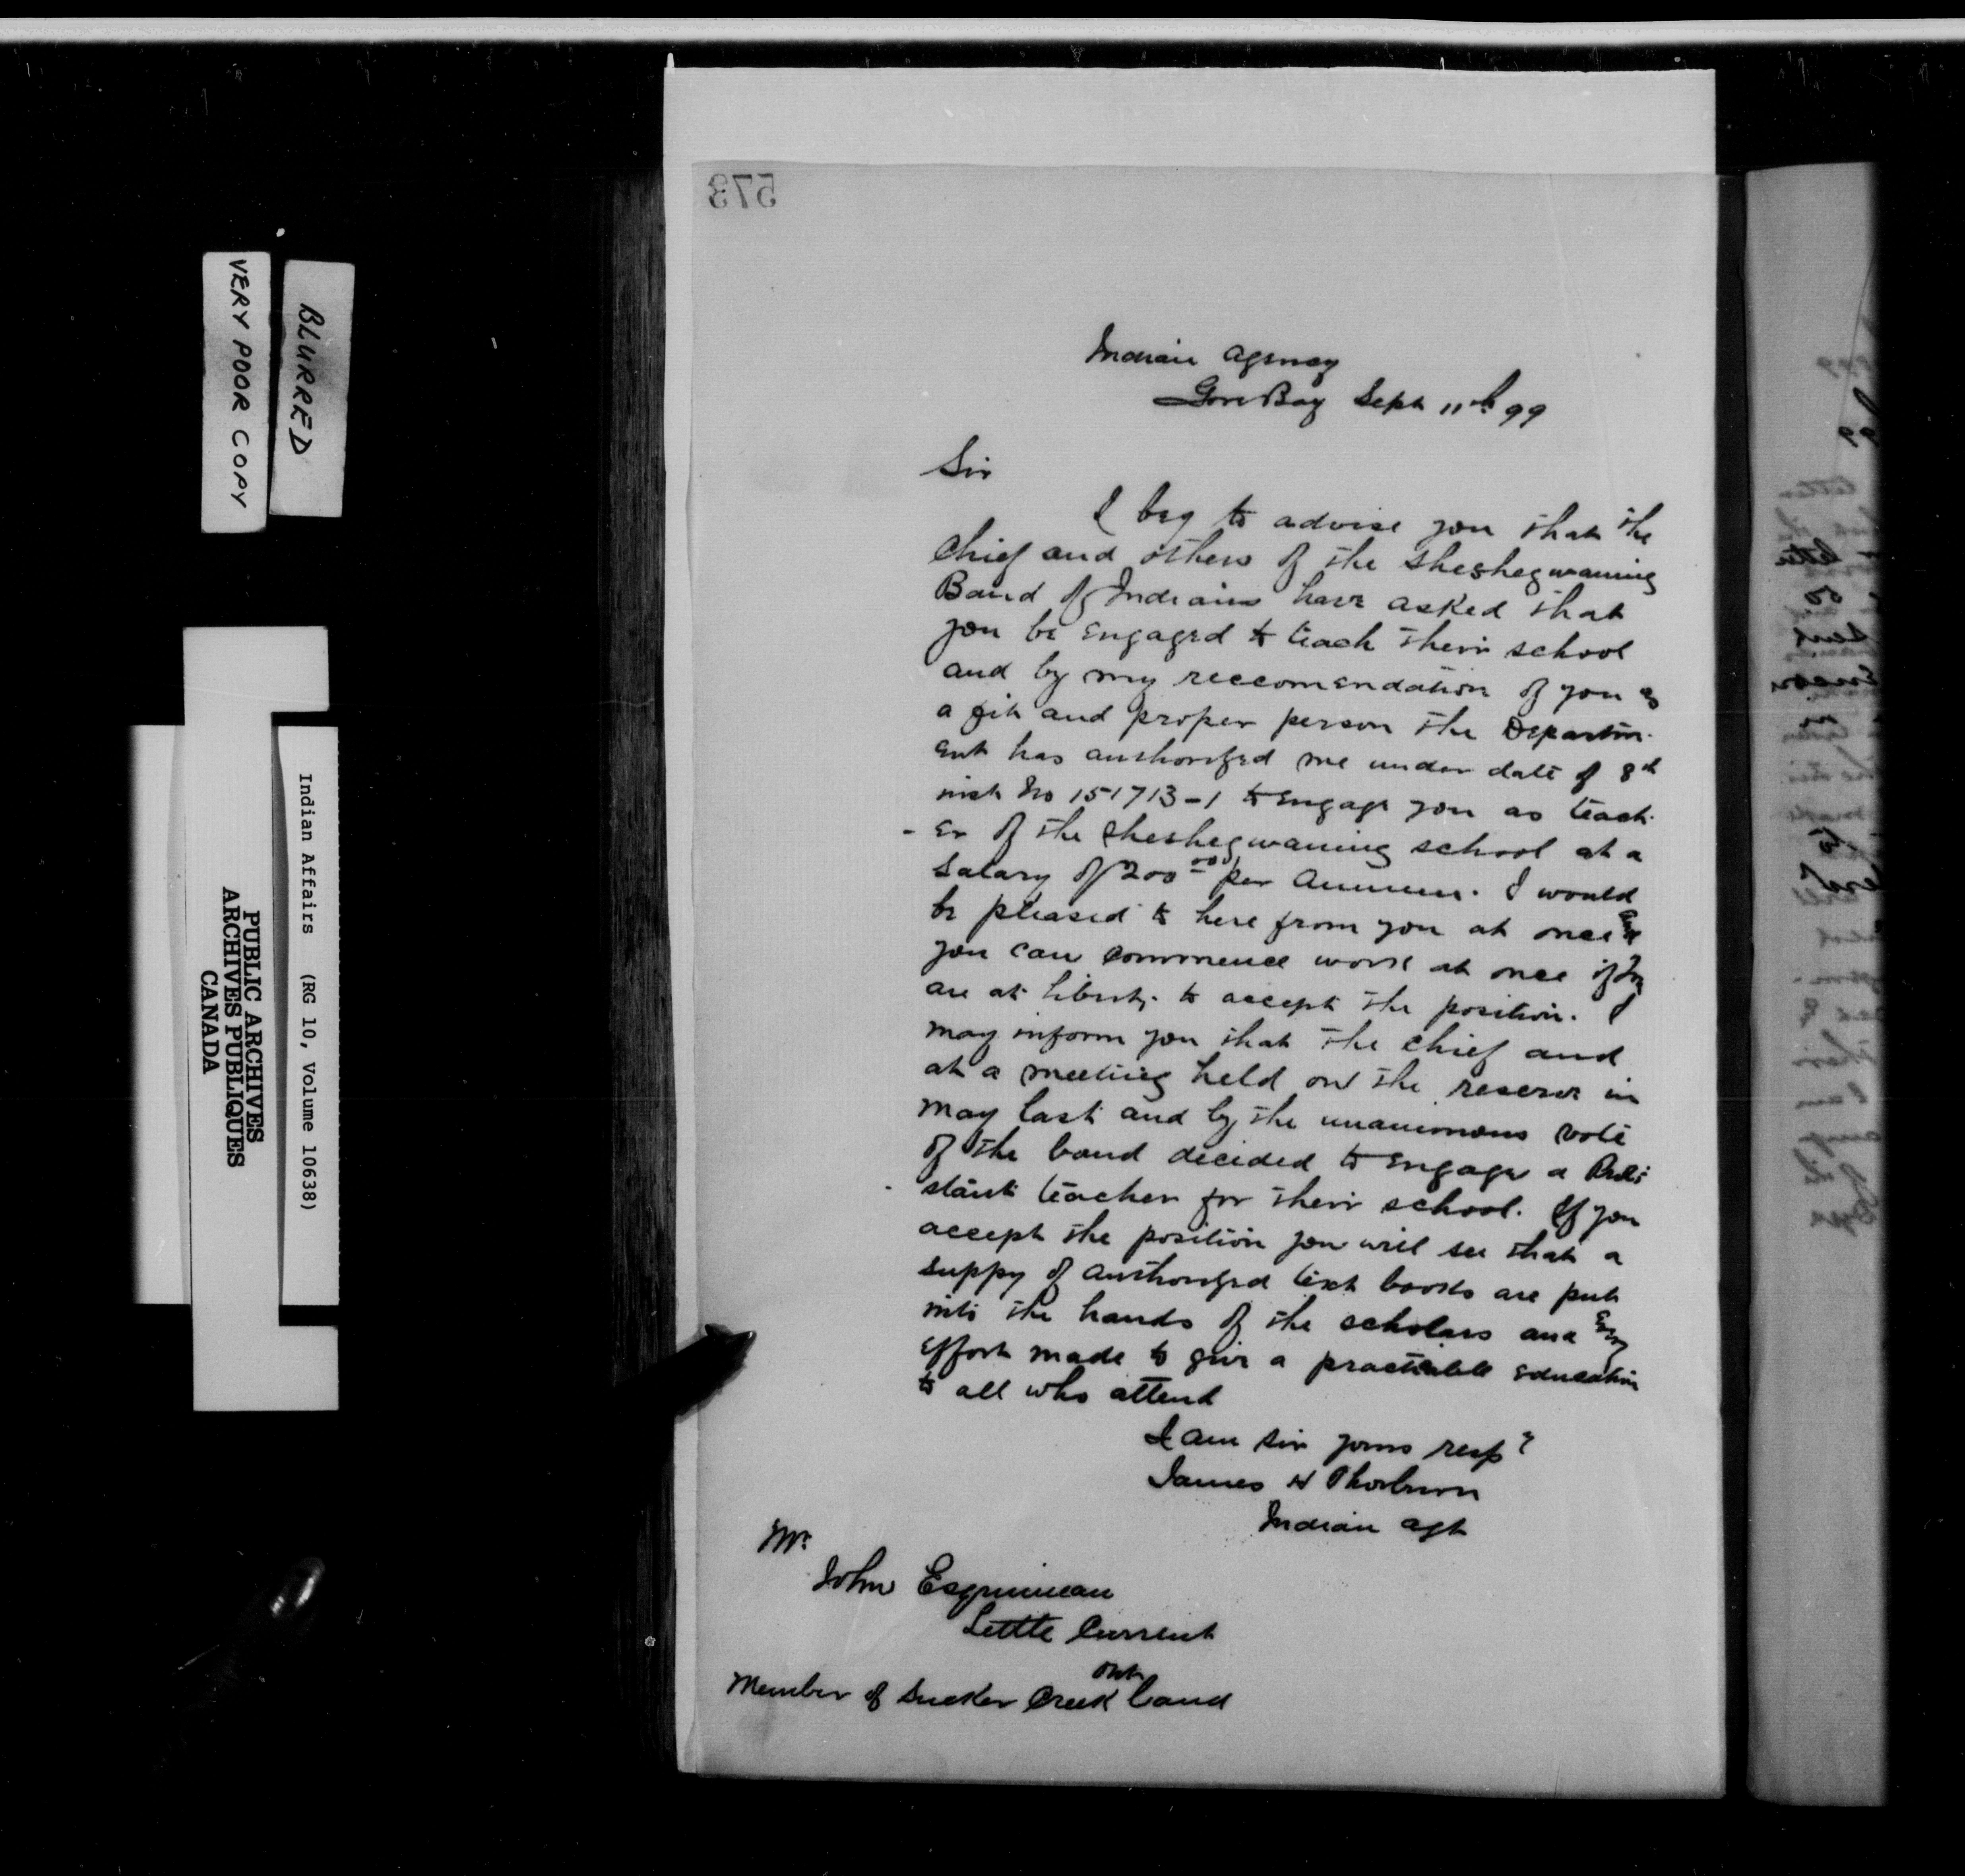 573
Indian Agency
Gore Bay Sept 11th 99
Sir
I beg to advise you that the
Chief and others of the Sheshegwaning
Band of Indians have asked that
you be engaged to teach their school
and by my reccomendation of you as
a fit and proper person the Departm-
ent has authorized me under date of 8th
inst No 151713-1 to engage you as teach-
-er of the Sheshegwaning school at a
salary of 200.00 per annum. I would
be pleased to here from you at once and
you can commence work at once if you
are at liberty to accept the position. I
may inform you that the chief and
at a meeting held on the reserve in
May last and by the unanimous vote
of the band decided to engage a Prote
-stant teacher for their school. If you
accept the position you will see that a
suppy of authorized text books are put
into the hands of the scholars and every
effort made to give a practicable education
to all who attend
I am sir yours resp
James H Thorburn
Indian agt
Mr.
John Esquimeau
Little Current
Ont
Member of Sucker Creek band
BLURRED
VERY POOR COPY
Indian Affairs (RG 10, Volume 10638)
PUBLIC ARCHIVES
ARCHIVES PUBLIQUES
CANADA